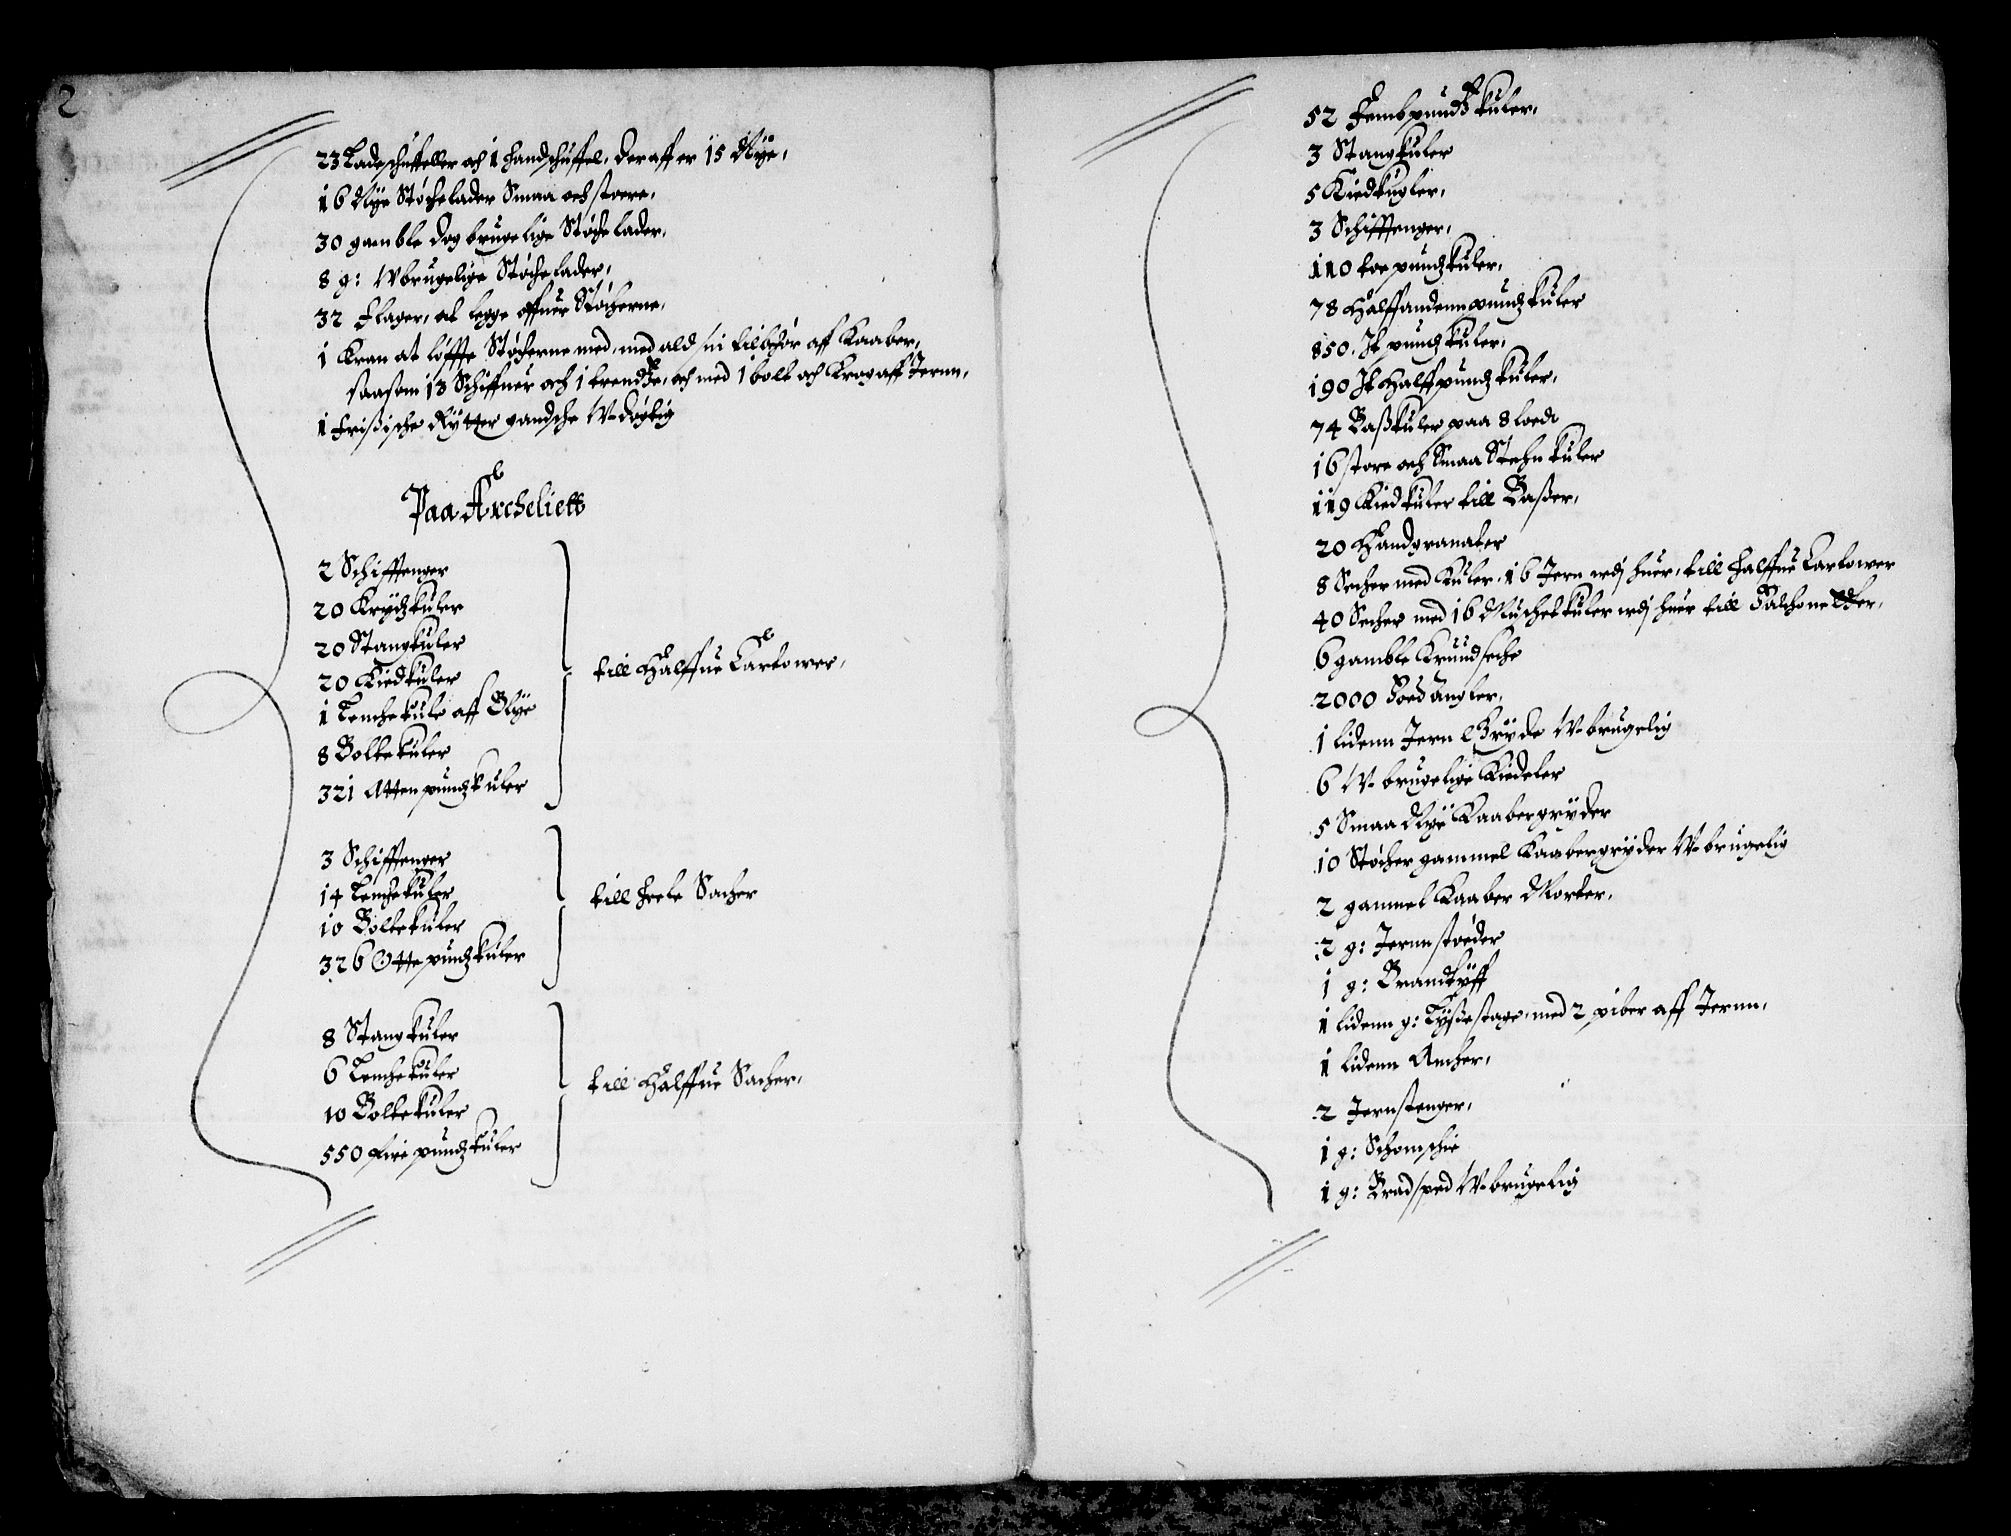 2
23 Ladeschuffeller och 1 handschuffel, der aff er 15 Nÿe,
16 Nÿe Støchelader Smaa och stoere,
30 gamble dog brugelige Støchelader,
8 g: Wbrugelige Støchelader,
32 Flager, at legge offuer Støcherne,
1 Kran at løffte Støcherne med, med ald sin tilbehør aff Kaaber,
saasom 13 Schiffuer och 1 trendse, och med 1 bolt och Krog aff Jernn,
1 Frisische Rÿtter gandsche W-døgtig
Paa Archeliett
2 Schifftenger
20 Krÿdzkuler
20 Stangkuler
20 Kiedkuler
1 Lenchekule aff Blÿe
8 Boltekuler
321 Atten pundzkuler
till Halffue Cartower,
3 Schifftenger
14 Lenchekuler
10 Boltekuler
326 Otte pundzkuler
till heele Sacher
8 Stangkuler
6 Lenchekuler
10 Boltekuler
550 Fire pundzkuler
till Halffue Sacher,
52 Fembpundzkuler,
3 Stangkuler
5 Kiedkugler,
3 Schifftenger,
110 toe pundzkuler,
78 Halffandenn pundzkuler
850. Jt pundz kuler,
190 Jt Halff pundz kuler,
74 Basskuler paa 8 loed
16 store och Smaa Stehnkuler
119 Kiedkuler till Basser,
20 Handgranater
8 Secher med Kuler, 16 Jern udj huer, till halffue Cartower
40 Secher med 16 Muschetkuler udj huer till Falchoneder,
6 gamble Krudseche
2000 Foed Angler,
1 lidenn Jern Grÿde W-brugelig
6 W-brugelige Kiedeler
5 Smaa Nÿe Kaabergrÿder
10 Støcher gammel Kaabergrÿder W-brugelig
2 gammel Kaaber Morter,
2 g: Jernn støeder
1 g: Brandkÿff
1 lidenn g: Lÿssestage, med 2 piber aff Jernn,
1 lidenn Ancher,
2 Jernstenger,
1 g: Schomschie
1 g: Bradsped W-brugelig